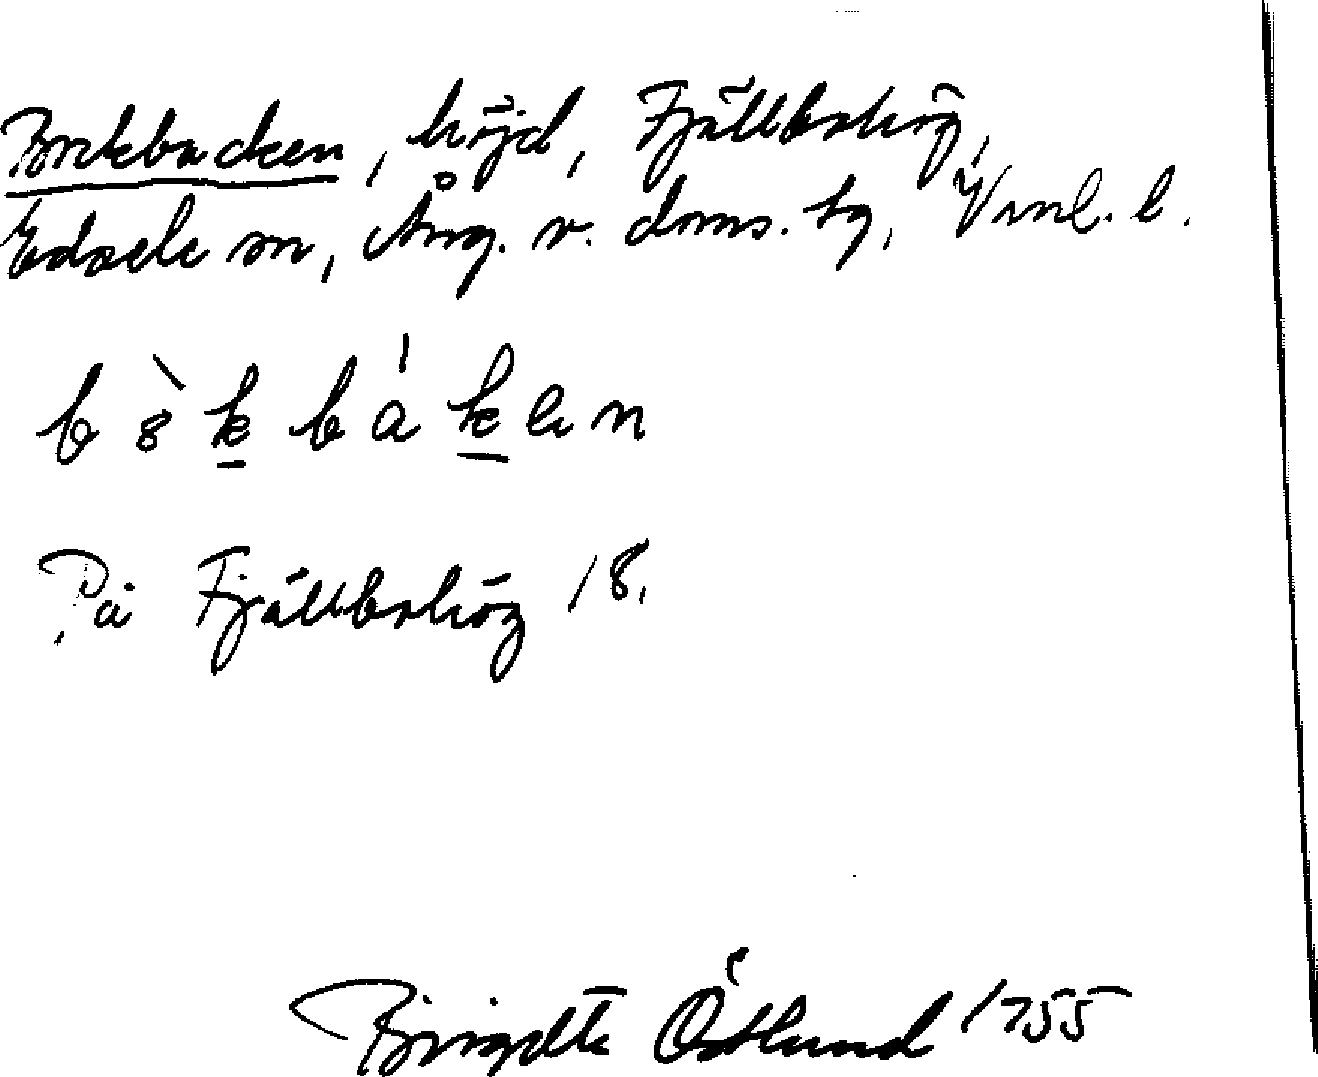 Bockbacken, höjd, Fjällbohög,
Edsele sn, Ång. v. doms. tg, Vnl. l.
b 8̀ k̲ b á k̲ e n
På Fjällbohög 18.
Birgitta Östlund 1955